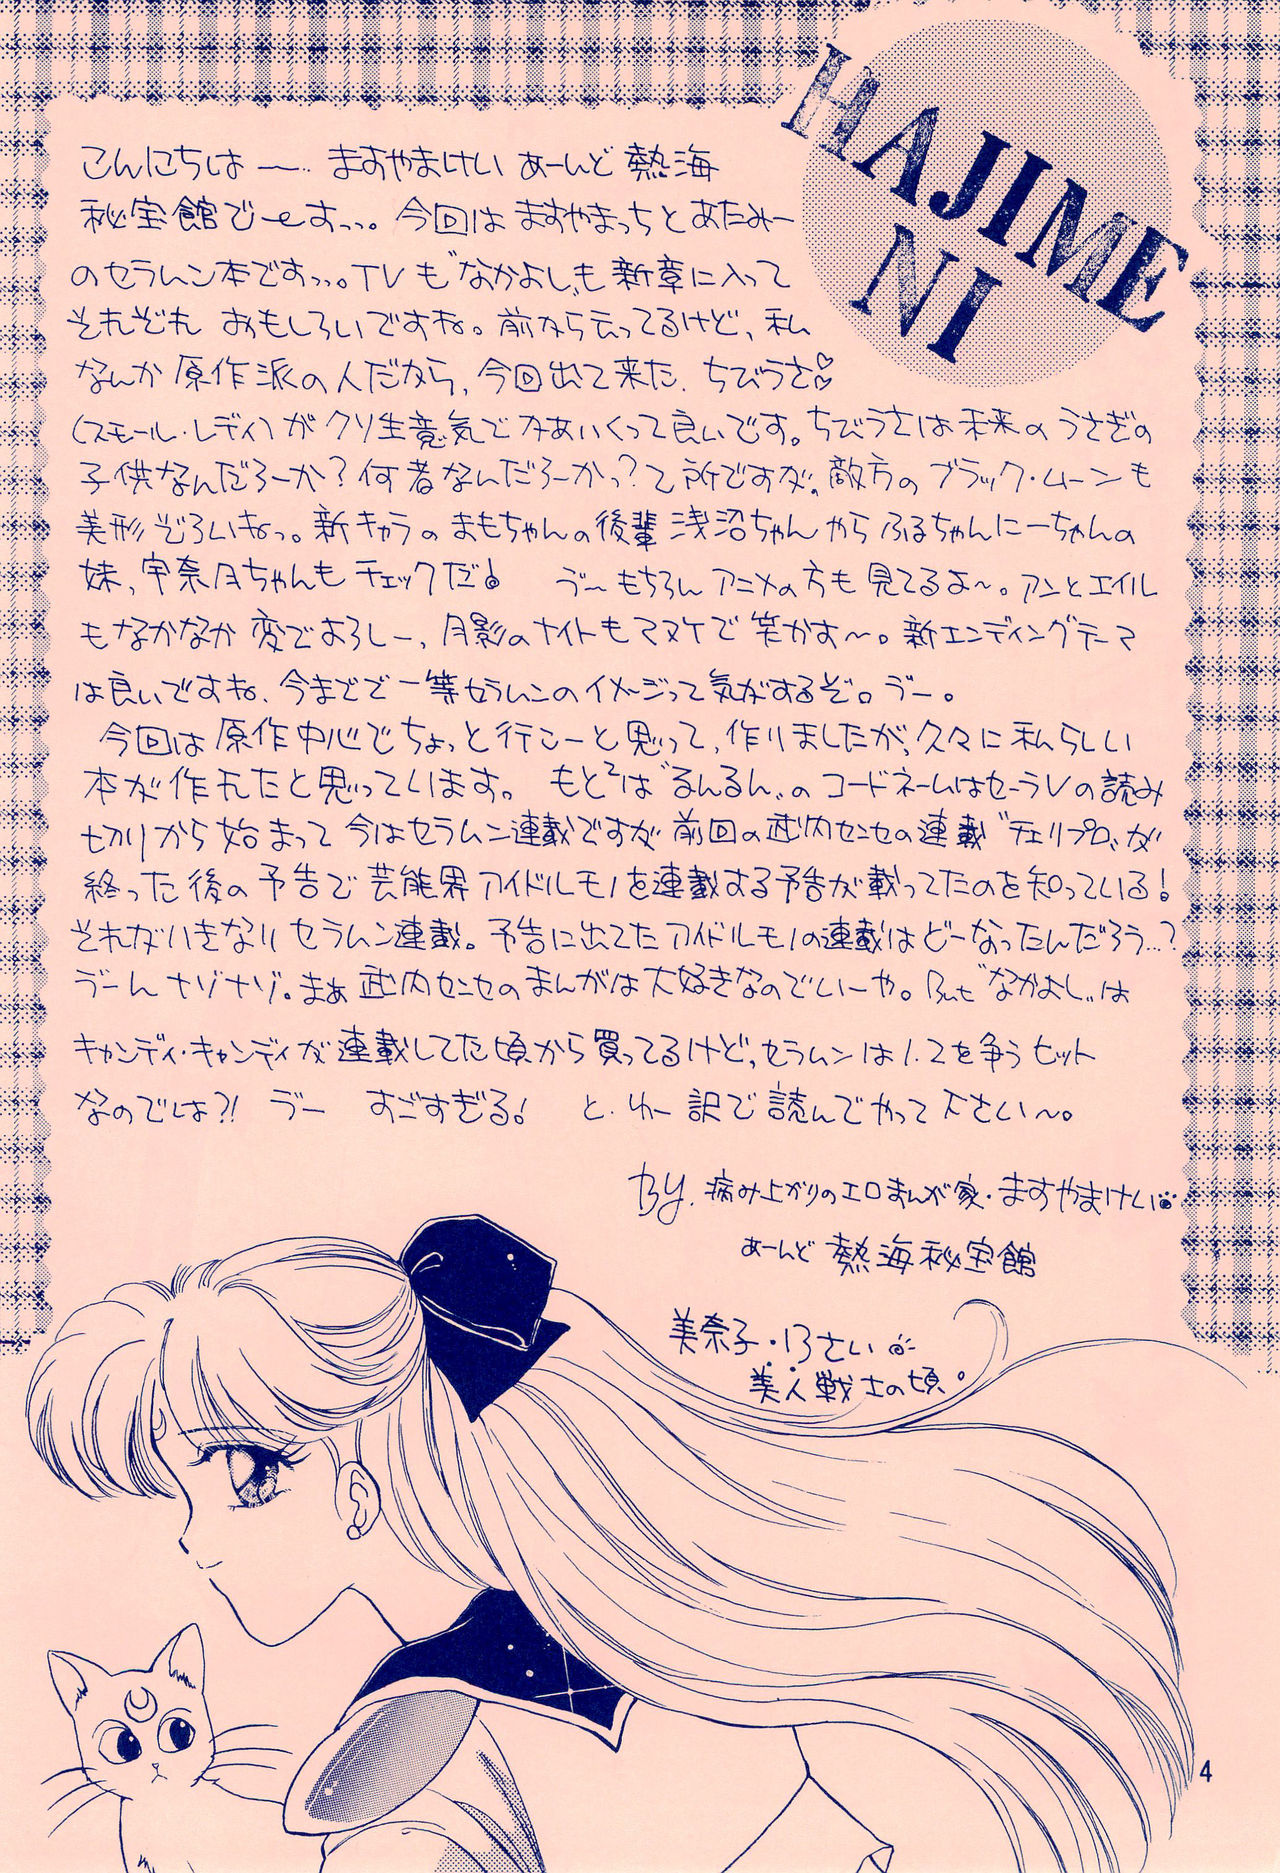 HAJIME
NI
こんにちは〜… ますやまけい あーんど 熱海
秘宝館でーすっっ。今回は ますやまっちと あたみー
のセラムン本ですっっ。TVも〝なかよし〟も 新章に入って
それぞれ おもしろいですね。前から云ってるけど、私
なんか 原作派の人だから、今回出て来た、ちびうさ♡♡
(スモール・レディ)が クソ生意気で かあいくって良いです。ちびうさは未来の うさぎの
子供なんだろーか?何者なんだろーかっ?て所ですが。敵方の ブラック・ムーンも
美形ぞろいねっ。新キャラの まもちゃんの後輩 浅沼ちゃん やら ふるちゃんにーちゃんの
妹、宇奈月ちゃんも チェックだ! ゔ〜 もちろん アニメの方も 見てるよ〜。アンとエイル
もなかなか 変でよろしー、月影のナイトもマヌケで 笑かす〜。新エンディングテーマ
は良いですね、今までで一等セラムンのイメージって気がするぞ。ゔー。
今回は 原作中心でちょっと行こーと思って、作りましたが、久々に私らしい
本が作れたと思っています。 もと²は〝るんるん〟の コードネームはセーラVの読み
切りから始まって 今はセラムン連載ですが 前回の武内センセの連載〝チェリプロ〟が
終った後の予告で 芸能界アイドルモノを連載する予告が載ってたのを知っている!
それがいきなり セラムン連載。予告に出てた アイドルモノの連載は どーなったんだろう…?
ゔーん ナゾナゾ。まぁ 武内センセのまんがは大好きなのでいーや。But〝なかよし〟は
キャンディ・キャンディが連載してた頃から買ってるけど、セラムンは1.2を争う ヒット
なのでは?! ゔー すごすぎる! と、ゆー訳で 読んでやって下さい〜。
By. 病み上がりのエロまんが家・ますやまけい
あーんど 熱海秘宝館
美奈子・13さい
美人戦士の頃。
4